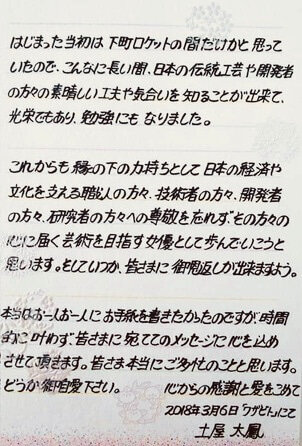 はじまった当初は下町ロケットの間だけかと思って
いたので、こんなに長い間、日本の伝統工芸や開発者
の方々の素晴しい工夫や気合いを知ることが出来て、
光栄でもあり、勉強にもなりました。
これからも縁の下の力持ちとして日本の経済や
文化を支える職人の方々、技術者の方々、開発者
の方々、研究者の方々への尊敬を忘れず、その方々の
心に届く芸術を目指す女優として歩んでいこうと
思います。そしていつか、皆さまに御恩返しが出来ますよう。
本当はお一人お一人にお手紙を書きたかったのですが、時間
的に叶わず、皆さまに宛ててのメッセージに心を込め
させて頂きます。皆さま本当にご多忙のことと思います。
どうか御自愛下さい。 心からの感謝と愛をこめて
2018年3月6日「ウガヂン」にて
土屋 太鳳